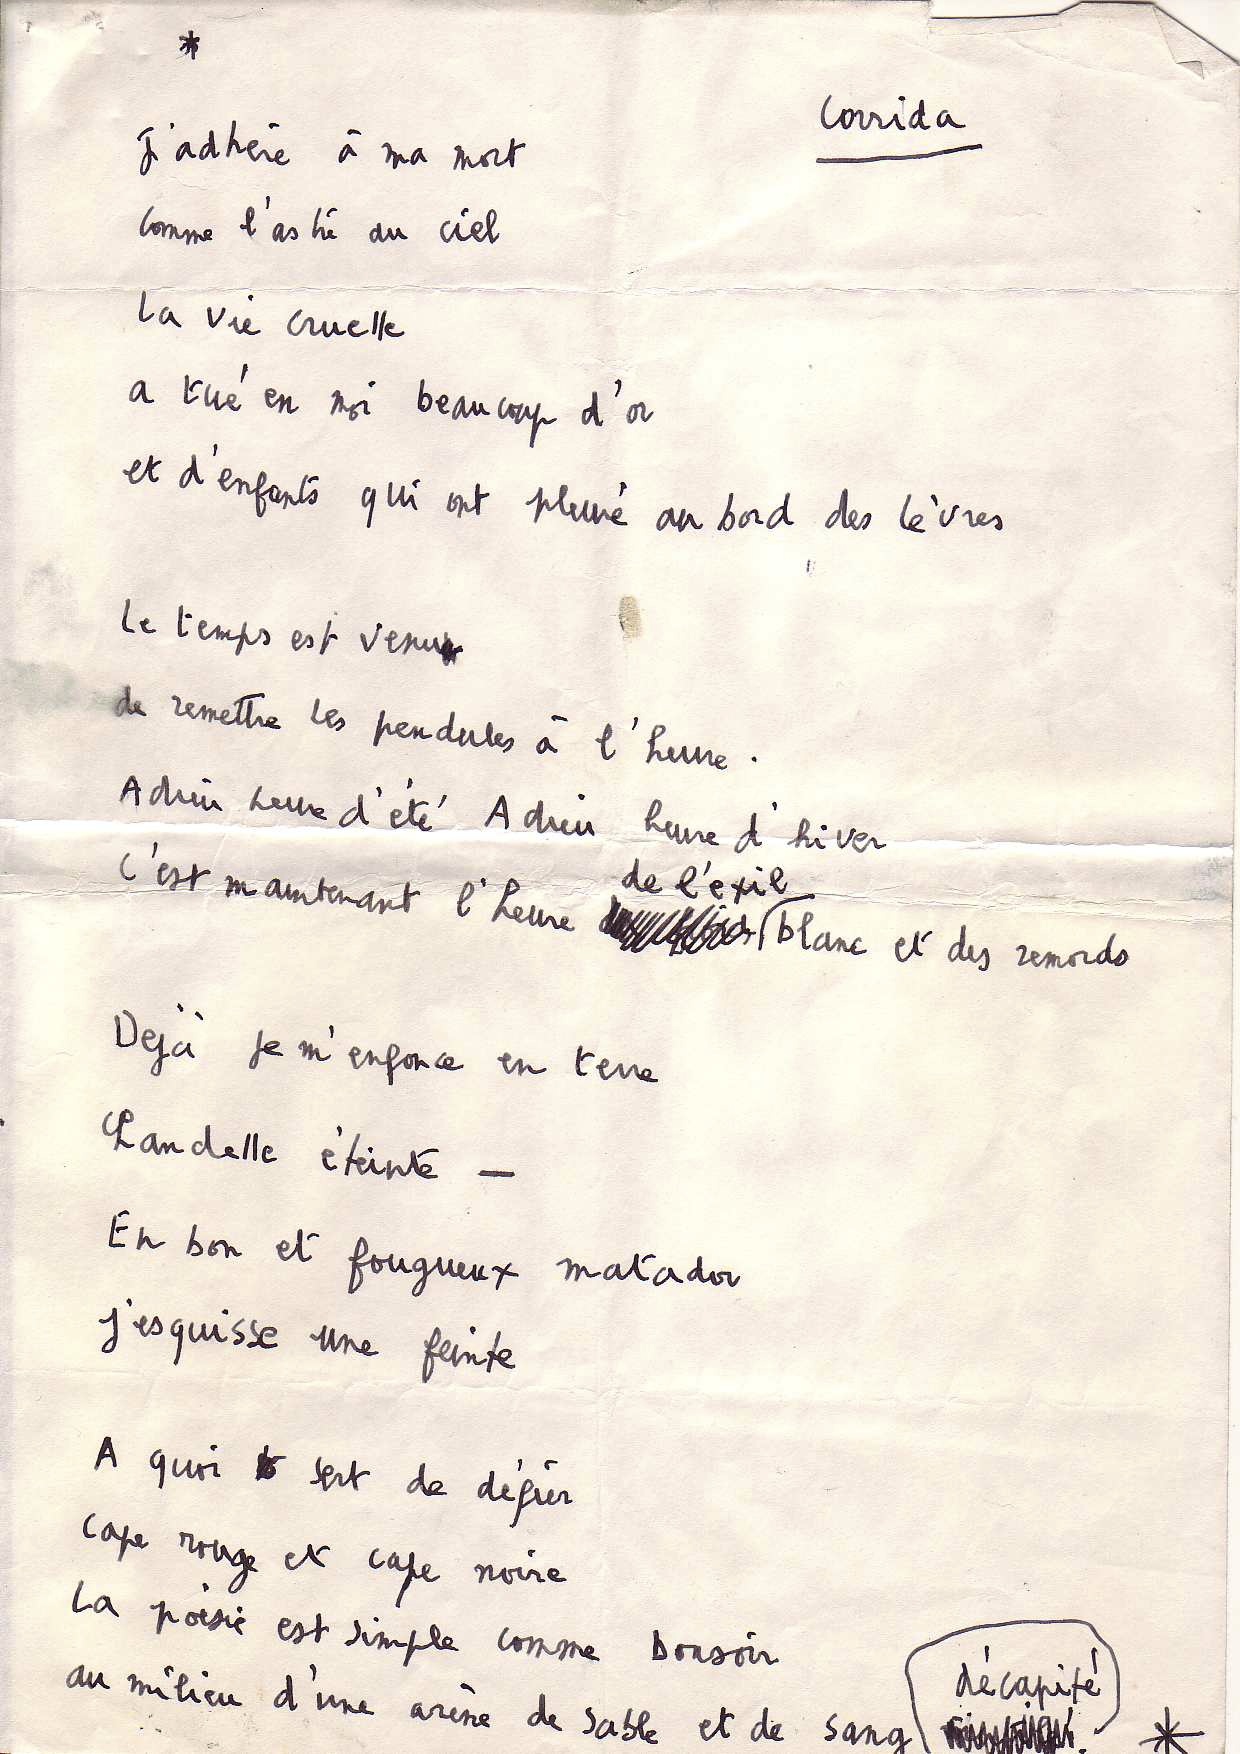 *
Corrida
J'adhère à ma mort
Comme l'astre au ciel
La vie cruelle
a tué en moi beaucoup d'or
et d'enfants qui ont pleuré au bord des lèvres
Le temps est venu
de remettre les pendules à l'heure.
Adieu heure d'été Adieu heure d'hiver
C'est maintenant l'heure de l'exil blanc et des remords
Dejà je m'enfonce en terre
Chandelle éteinte —
En bon et fougueux matador
j'esquisse une feinte
A quoi sert de défier
Cape rouge et cape noire
La poésie est simple comme bonsoir
au milieu d'une arène de sable et de sang décapité
*